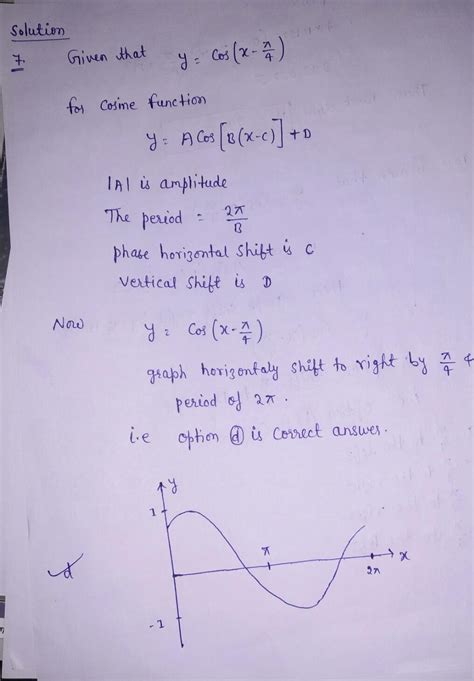 Solution
7. Given that y = Cos(x - π/4)
for Cosine function
y = A Cos[B(x-c)] + D
|A| is amplitude
The period = 2π/B
phase horizontal shift is C
Vertical Shift is D
Now y = Cos(x - π/4)
graph horizontaly shift to right by π/4 &
period of 2π.
i.e option ⓓ is correct answer.
y
1
π
x
2π
d
-1